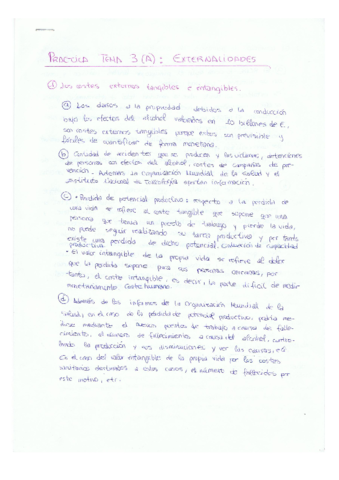 PRACTICA TEMA 3 (A): EXTERNALIDADES
① Los costes externos tangibles e intangibles.
ⓐ Los daños a la propiedad debidos a la conducción
bajo los efectos del alcohol valorados en 10 billones de €,
son costes externos tangibles porque estos son previsibles y
fáciles de cuantificar de forma monetaria.
ⓑ Cantidad de accidentes que se producen y las víctimas, detenciones
de personas con efectos del alcohol, costes de campañas de pre-
vención. Además la Organización Mundial de la Salud y el
Instituto Nacional de Toxicología aportan información.
ⓒ • Pérdida de potencial productivo: respecto a la pérdida de
una vida se refiere al coste tangible que supone que una
persona que tenga un puesto de trabajo y pierde la vida,
no puede seguir realizando su tarea productiva y por tanto
existe una pérdida de dicho potencial. de capacidad
productiva.
• El valor intangible de la propia vida se refiere al dolor
que la pérdida supone para sus personas cercanas, por
tanto, el coste intangible, es decir, la parte difícil de medir
monetariamente. humano.
ⓓ Además de los informes de la Organización Mundial de la
Salud, en el caso de la pérdida de potencial productivo, podría me-
dirse mediante el puestos de trabajo a causa de falle-
cimientos, el número de fallecimientos a causa del alcohol,
la producción y sus disminuciones y ver las causas, etc
En el caso del valor intangible de la propia vida por los costes
sanitarios destinados a estos casos, el número de fallecidos por
este motivo, etc.